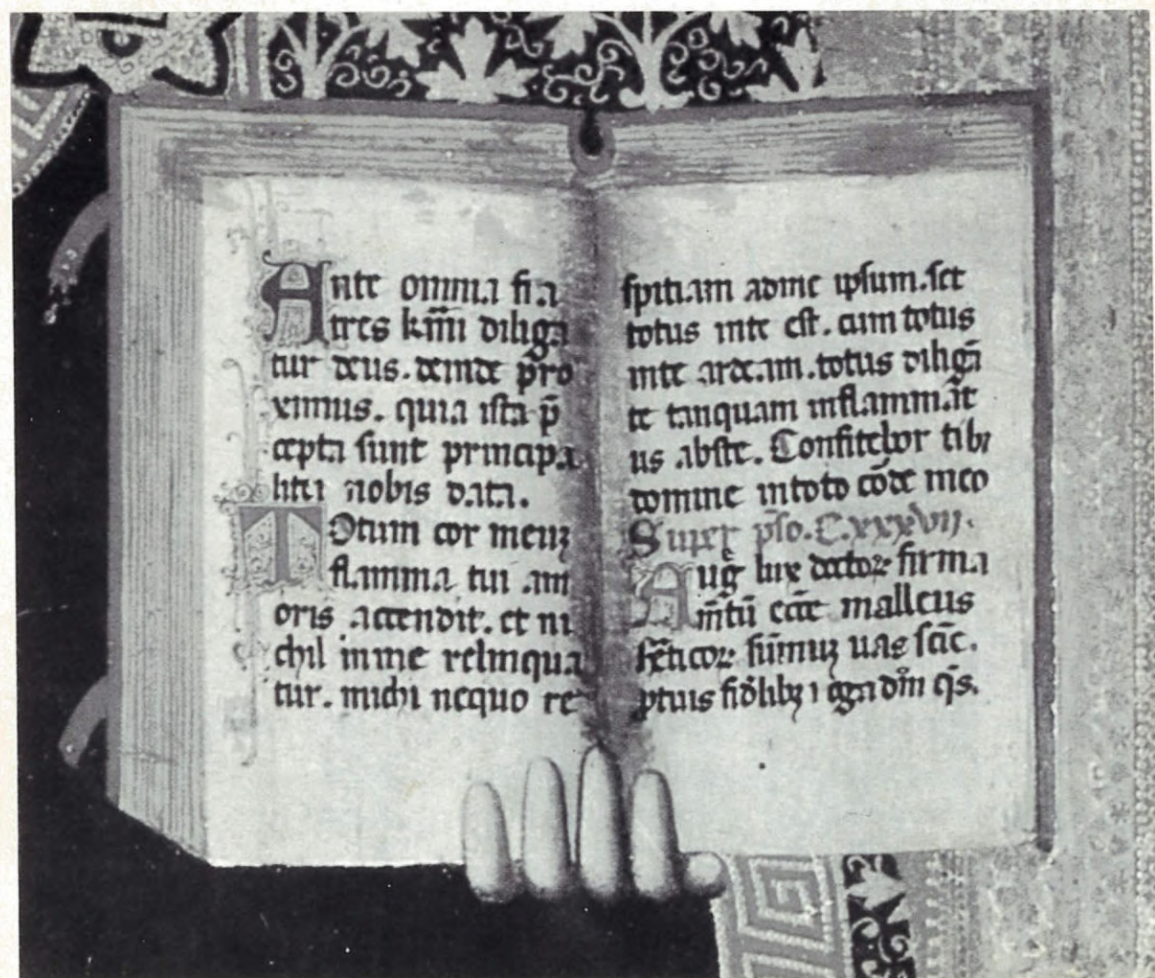 Ante omnia fra
tres kmi diliga
tur deus. deinde pro
ximus. quia ista p̄
cepta sunt principa
liter nobis data.
Totum cor meuz
flamma tui am
oris accendit. et ni
chil in me relinqua
tur. michi nequo re
spitiam adme ipsum. set
totus inte est. cum totus
inte ardeam. totus diligā
te tanquam inflammāt
us abste. Confitebor tibi
domine intoto cōde meo
Super pso. C.xxxvii.
Aug̉ lux doctoꝝ firma
m̄tū ecc̄e malleus
h̄eticoꝝ sūmuz uas scīe.
fidēlibꝫ dn̄m q̄s.